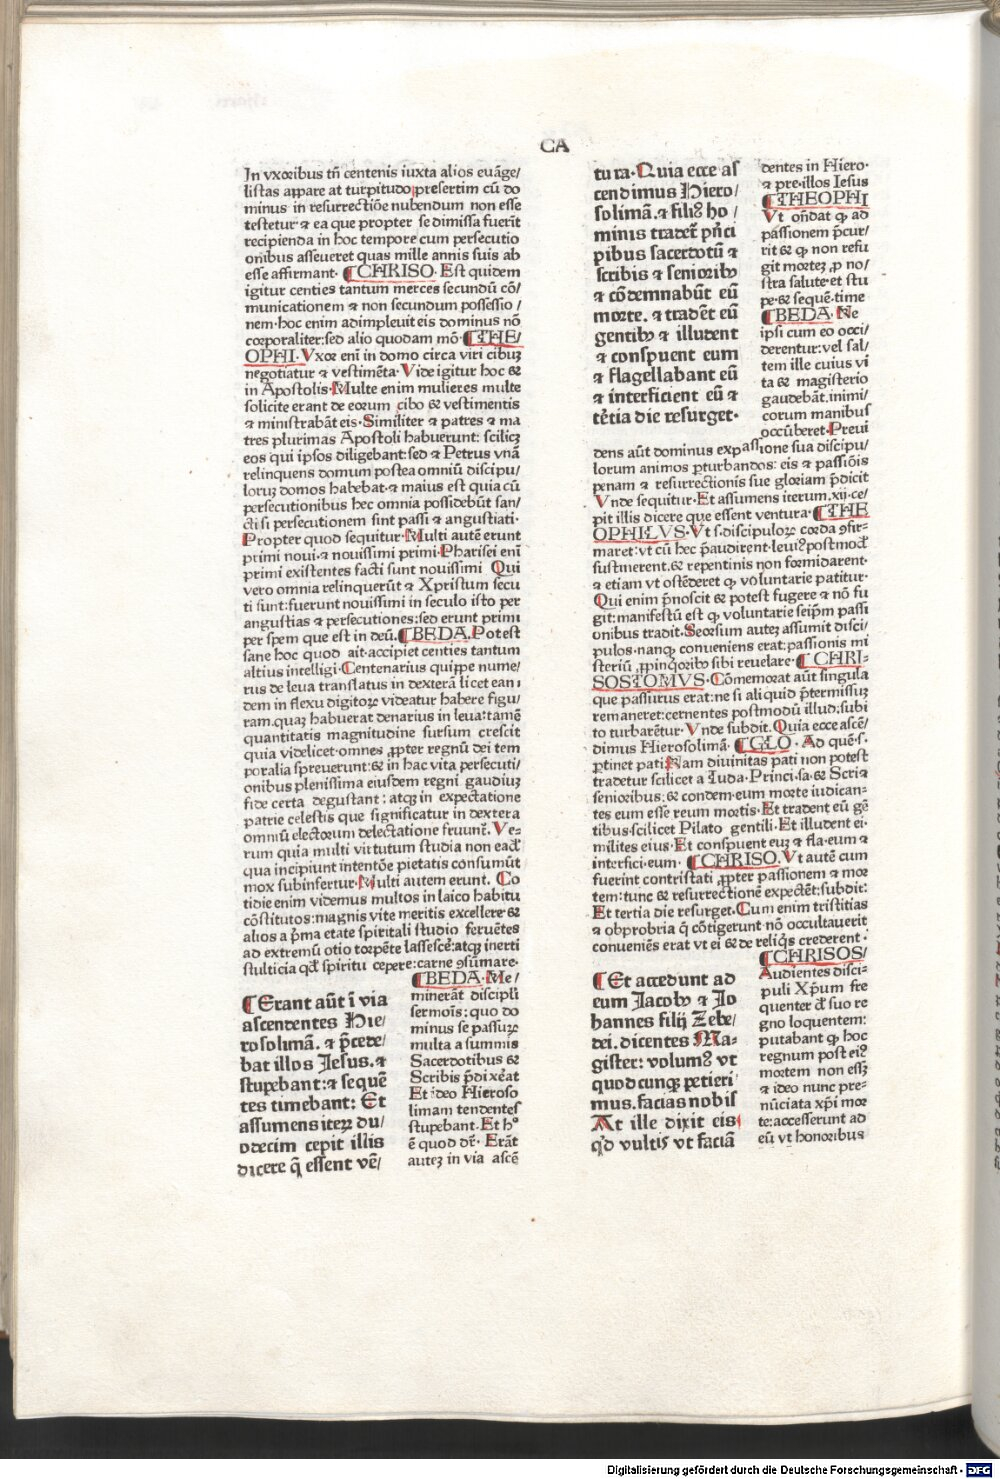 CA
In vxoribus tñ centenis iuxta alios euãge/
listas appare at turpitudo presertim cũ do
minus in resurrectiõe nubendum non esse
testetur ⁊ ea que propter se dimissa fuerit
recipienda in hoc tempore cum persecutio
onibus asseueret quas mille annis suis ab
esse affirmant· ¶CHRISO· Est quidem
igitur centies tantum merces secundũ cõ/
municationem ⁊ non secundum possessio/
nem·hoc enim adimpleuit eis dominus nõ
corporaliter:sed alio quodam mõ·¶THE/
OPHI·Vxor eni in domo circa viri cibuꝫ
negotiatur ⁊ vestimẽta·Vide igitur hoc &
in Apostolis·Multe enim mulieres multe
solicite erant de eorum cibo & vestimentis
⁊ ministrabãt eis·Similiter ⁊ patres ⁊ ma
tres plurimas Apostoli habuerunt: scilicꝫ
eos qui ipsos diligebant:sed ⁊ Petrus vnã
relinquens domum postea omniũ discipu/
loruꝫ domos habebat·⁊ maius est quia cũ
persecutionibus hec omnia possidebũt san/
cti si persecutionem sint passi ⁊ angustiati·
Propter quod sequitur·Multi autẽ erunt
primi noui·⁊ nouissimi primi·Pharisei eni
primi existentes facti sunt nouissimi Qui
vero omnia relinquerũt ⁊ Xpristum secu
ti sunt:fuerunt nouissimi in seculo isto per
angustias ⁊ persecutiones:sed erunt primi
per spem que est in deũ.¶BEDA.Potest
sane hoc quod ait·accipiet centies tantum
altius intelligi·Centenarius quippe nume/
rus de leua translatus in dexterã licet eanı
dem in flexu digitorꝫ videatur habere figu/
ram.quaꝫ habuerat denarius in leua:tamẽ
quantitatis magnitudine sursum crescit
quia videlicet·omnes ꝓpter regnũ dei tem
poralia spreuerunt:& in hac vita persecuti/
onibus plenissima eiusdem regni gaudiuꝫ
fide certa degustant: atqꝫ in expectatione
patrie celestis que significatur in dextera
omniũ electorum delectatione fruunt̃. Ve=
rum quia multi virtutum studia non eadẽ
qua incipiunt intentõe pietatis consumũt
mox subinfertur·Multi autem erunt. Co
tidie enim videmus multos in laico habitu
cõstitutos:magnis vite meritis excellere·&
alios a p̃ma etate spiritali studio feruẽtes
ad extremũ otio torpẽte lassescẽ:atqꝫ inerti
stulticia qd̃ spiritu cepere:carne ꝯsũmare·
¶Erant aũt ĩ via
ascendentes Hie/
rosolimã. ⁊ p̃cede/
bat illos Jesus.⁊
stupebant:⁊ sequẽ
tes timebant: Et
assumens iterꝫ du/
odecim cepit illis
dicere q̃ essent vẽ/
¶BEDA·Me/
minerãt discipli
sermois: quo do
minus se passurꝫ
multa a summis
Sacerdotibus &
Scribis p̃dixẽat
Et ideo Hieroso
limam tendentes
stupebant·Et h°
ẽ quod dr̃· Erãt
auteꝫ in via ascẽ
tura·Quia ecce as
cendimus Hiero/
solimã.⁊ filiꝰ ho/
minis tradet̃ p̃nci
pibus sacerdotũ ⁊
scribis ⁊ seniorib9
⁊ cõdemnabũt eũ
morte. ⁊ tradẽt eũ
gentib9 ⁊ illudent
⁊ conspuent eum
⁊ flagellabant eũ
⁊ interficient eũ ⁊
tẽtia die resurget·
dentes in Hiero·
⁊ pre·illos Iesus
¶THEOPHI
Vt oñdat qꝫ ad
passionem p̃cur/
rit & qꝫ non refu
git mortez ,ꝓ no/
stra salute·et stu
pe·& sequẽ·time
¶BEDA· Ne
ipsi cum eo occi/
derentur:vel sal/
tem ille cuius vi
ta & magisterio
gaudebãt.inimi/
corum manibus
occũberet·Preui
dens aũt dominus ex passione sua discipu/
lorum animos ꝑturbandos: eis ⁊ passiõis
penam ⁊ resurrectionis sue gloriam p̃dicit
Vnde sequitur·Et assumens iterum.xij.ce/
pit illis dicere que essent ventura·¶THE
OPHILVS·Vt s.discipulorꝫ corda ꝯfir=
maret:vt cũ hec p̃audirent·leuiꝰ postmodẽ
sustinerent.& repentinis non formidarent·
⁊ etiam vt ostẽderet qꝫ voluntarie patitur·
Qui enim p̃noscit & potest fugere ⁊ nõ fu
git:manifestũ est qꝫ voluntarie seip̃m passi
onibus tradit·Seorsum auteꝫ assumit disci/
pulos·nanqꝫ conueniens erat:passionis mi
steriũ ,ꝓpinqꝫorib9 sibi reuelare·¶CHRI=
SOSTOMVS·Cõmemorat aũt singula
que passurus erat:ne si aliquid p̃termissuꝫ
remaneret:cernentes postmodũ illud:subi
to turbarẽtur·Vnde subdit.Quia ecce ascẽ/
dimus Hierosolimã· ¶GLO·Ad quẽ·s·
ꝑtinet pati·Nam diuinitas pati non potest
tradetur scilicet a Iuda·Princi·sa·& Scri⁊
senioribus:& condem·eum morte iudican=
tes eum esse reum mortis·Et tradent eũ gẽ
tibus·scilicet Pilato gentili·Et illudent ei·
milites eius·Et conspuent euꝫ ⁊ fla·eum ⁊
interfici·eum· ¶CHRISO.Vt autẽ cum
fuerint contristati ,ꝓpter passionem ⁊ mor
tem:tunc & resurrectionẽ expectẽt:subdit:
Et tertia die resurget·Cum enim tristitias
⁊ obprobria q̃ cõtigerunt nõ occultauerit
conueniẽs erat vt ei & de reliq̃s crederent·
¶Et accedunt ad
eum Jacob9 ⁊ Jo
hannes filij Zebe/
dei. dicentes Ma=
gister: volumꝰ vt
quodcunqꝫ petieri/
mus.facias nobis
At ille dixit eis
qꝫd vultis vt faciã
¶CHRISOS/
Audientes disci=
puli Xp̃um fre
quenter d̃ suo re
gno loquentem:
putabant qꝫ hoc
regnum post eiꝰ
mortem non esꝫ
⁊ ideo nunc pre=
nũciata xp̃i mor
te:accesserunt ad
eũ vt honoribus
Digitalisierung gefördert durch die Deutsche Forschungsgemeinschaft - DFG